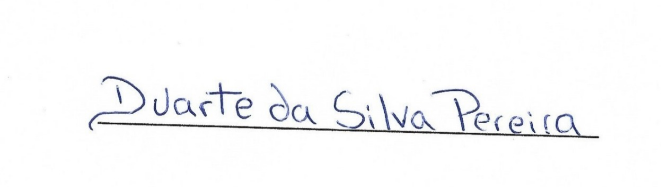 Duarte da Silva Pereira